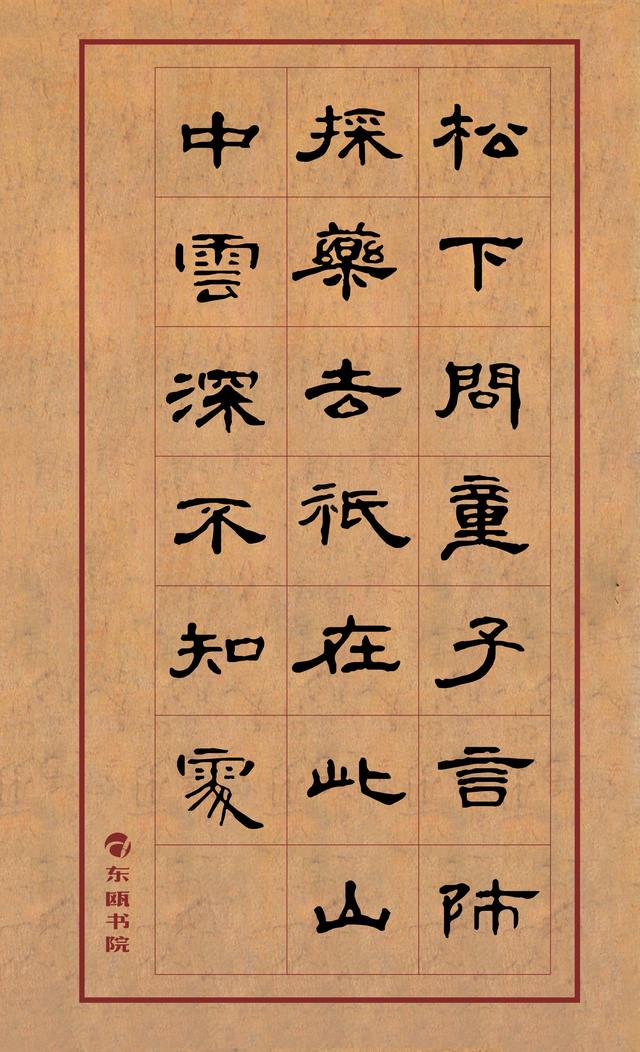 松下問童子言師
採藥去祇在此山
中雲深不知處
东瓯书院